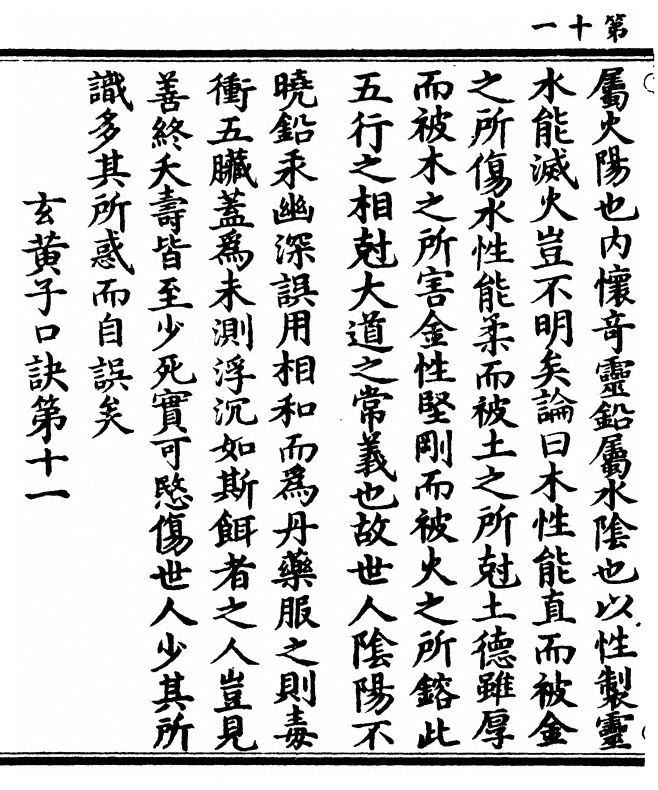 第十一
屬火陽也内懷竒靈鉛屬水陰也以性製靈
水能滅火豈不明矣論曰木性能直而被金
之所傷水性能柔而被土之所尅土德雖厚
而被木之所害金性堅剛而被火之所鎔此
五行之相尅大道之常義也故世人陰陽不
曉鉛汞幽深誤用相和而爲丹藥服之則毒
衝五臟蓋爲未測浮沉如斯餌者之人豈見
善終夭壽皆至少死實可愍傷世人少其所
識多其所惑而自誤矣
玄黄子口訣第十一